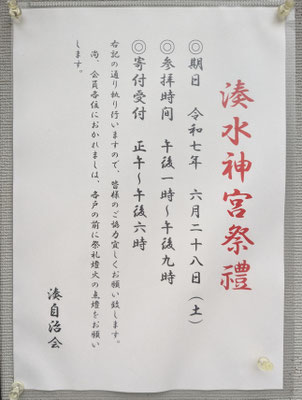 湊水神宮祭禮
◎期日　令和七年　六月二十八日（土）
◎参拝時間　午後一時～午後九時
◎寄付受付　正午～午後六時
右記の通り執り行いますので、皆様のご協力宜しくお願い致します。
尚、会員各位におかれましは、各戸の前に祭礼燈火の点燈をお願い
します。
湊自治会